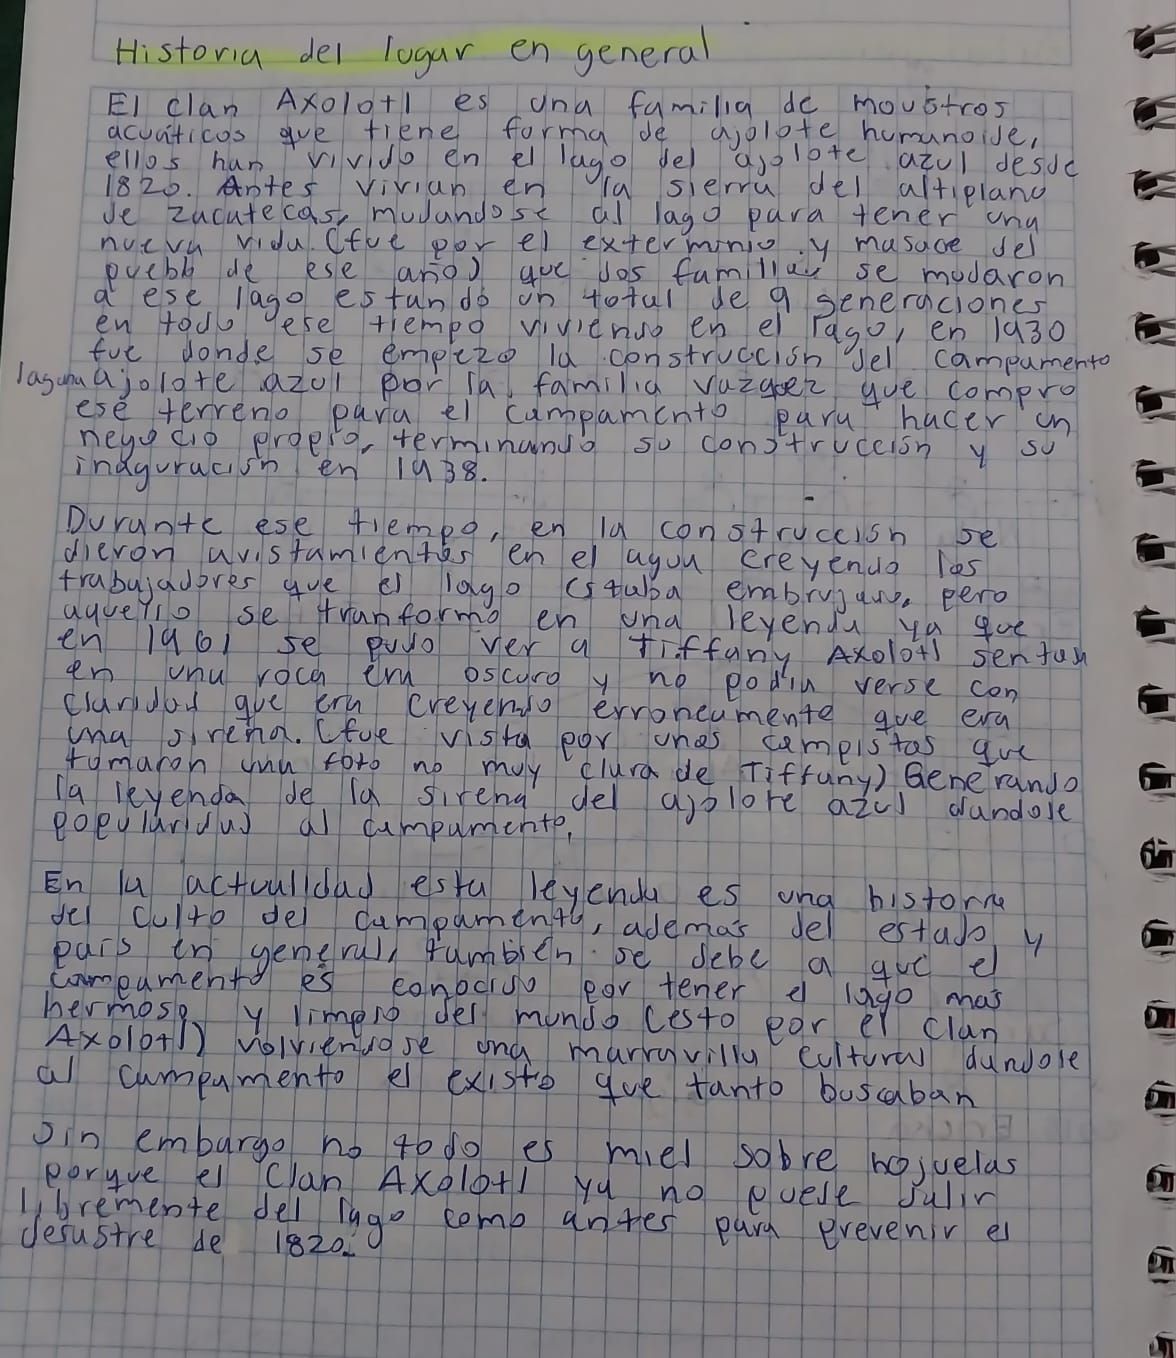 Historia del lugar en general
El clan Axolotl es una familia de moustros
acuaticos que tiene forma de ajolote humanoide,
ellos han vivido en el lago del ajolote azul desde
1820. Antes vivian en la sierra del altiplano
de zacatecas, mudandose al lago para tener una
nueva vida. (fue por el exterminio y masace del
pueblo de ese año) que dos familias se mudaron
a ese lago estando un total de 9 generaciones
en todo ese tiempo viviendo en el lago, en 1930
fue donde se empezo la construcción del campamento
laguna ajolote azul por la familia vazquez que compro
ese terreno para el campamento para hacer un
negocio propio, terminando su construcción y su
inaguración en 1938.
Durante ese tiempo, en la construcción se
dieron avistamientos en el agua creyendo los
trabajadores que el lago estaba embrujado, pero
aquello se tranformo en una leyenda ya que
en 1961 se pudo ver a Tiffany Axolotl sentada
en una roca era oscuro y no podia verse con
claridad que era creyendo erroneamente que era
una sirena. (fue vista por unos campistas que
tomaron una foto no muy clara de Tiffany) Generando
la leyenda de la sirena del ajolote azul dandole
popularidad al campamento,
En la actualidad esta leyenda es una historia
del culto del campamento, además del estado y
pais en general, también se debe a que el
campamento es conocido por tener el lago mas
hermoso y limpio del mundo (esto por el clan
Axolotl) volviendose una marravilla cultural dandole
al campamento el existo que tanto buscaban
Sin embargo no todo es miel sobre hojuelas
porque el Clan Axolotl ya no puede salir
libremente del lago como antes para prevenir el
desastre de 1820.